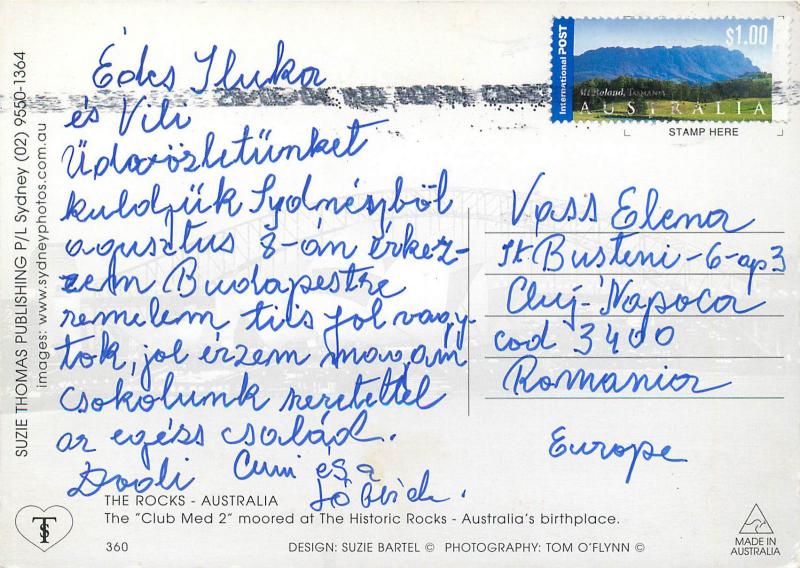 SUZIE THOMAS PUBLISHING P/L Sydney (02) 9550-1364
images: www.sydneyphotos.com.au
Édes Iluka
és Vili
Üdvözletünket
kuldzük Sydnéyböl
agusztus 8-án érkez-
zem Budapestre
remelem ti is jol vagy-
tok, jol érzem magam
Csokolunk szeretettel
az egész család.
Dodi Cuni és a
többiek.
International POST
$1.00
Mt Roland, TASMANIA
AUSTRALIA
STAMP HERE
Vass Elena
st. Busteni-6-ap3
Cluj-Napoca
cod 3400
Romania
Europe
THE ROCKS - AUSTRALIA
The "Club Med 2" moored at The Historic Rocks - Australia's birthplace.
360
DESIGN: SUZIE BARTEL © PHOTOGRAPHY: TOM O'FLYNN ©
MADE IN
AUSTRALIA